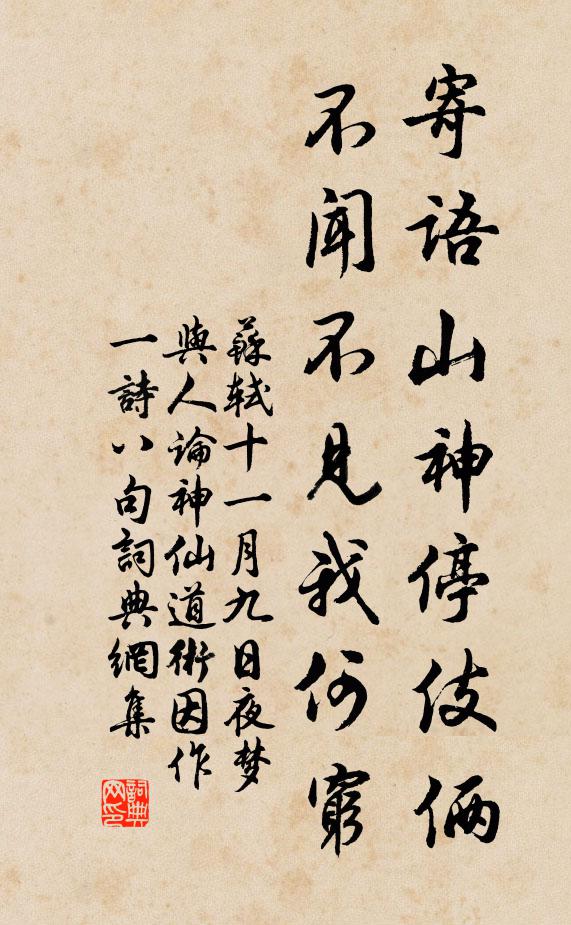 寄語山神停伎倆
不聞不見我何窮
蘇軾十一月九日夜梦
與人論神仙道術因作
一詩八句詞典網集
詞典
网印